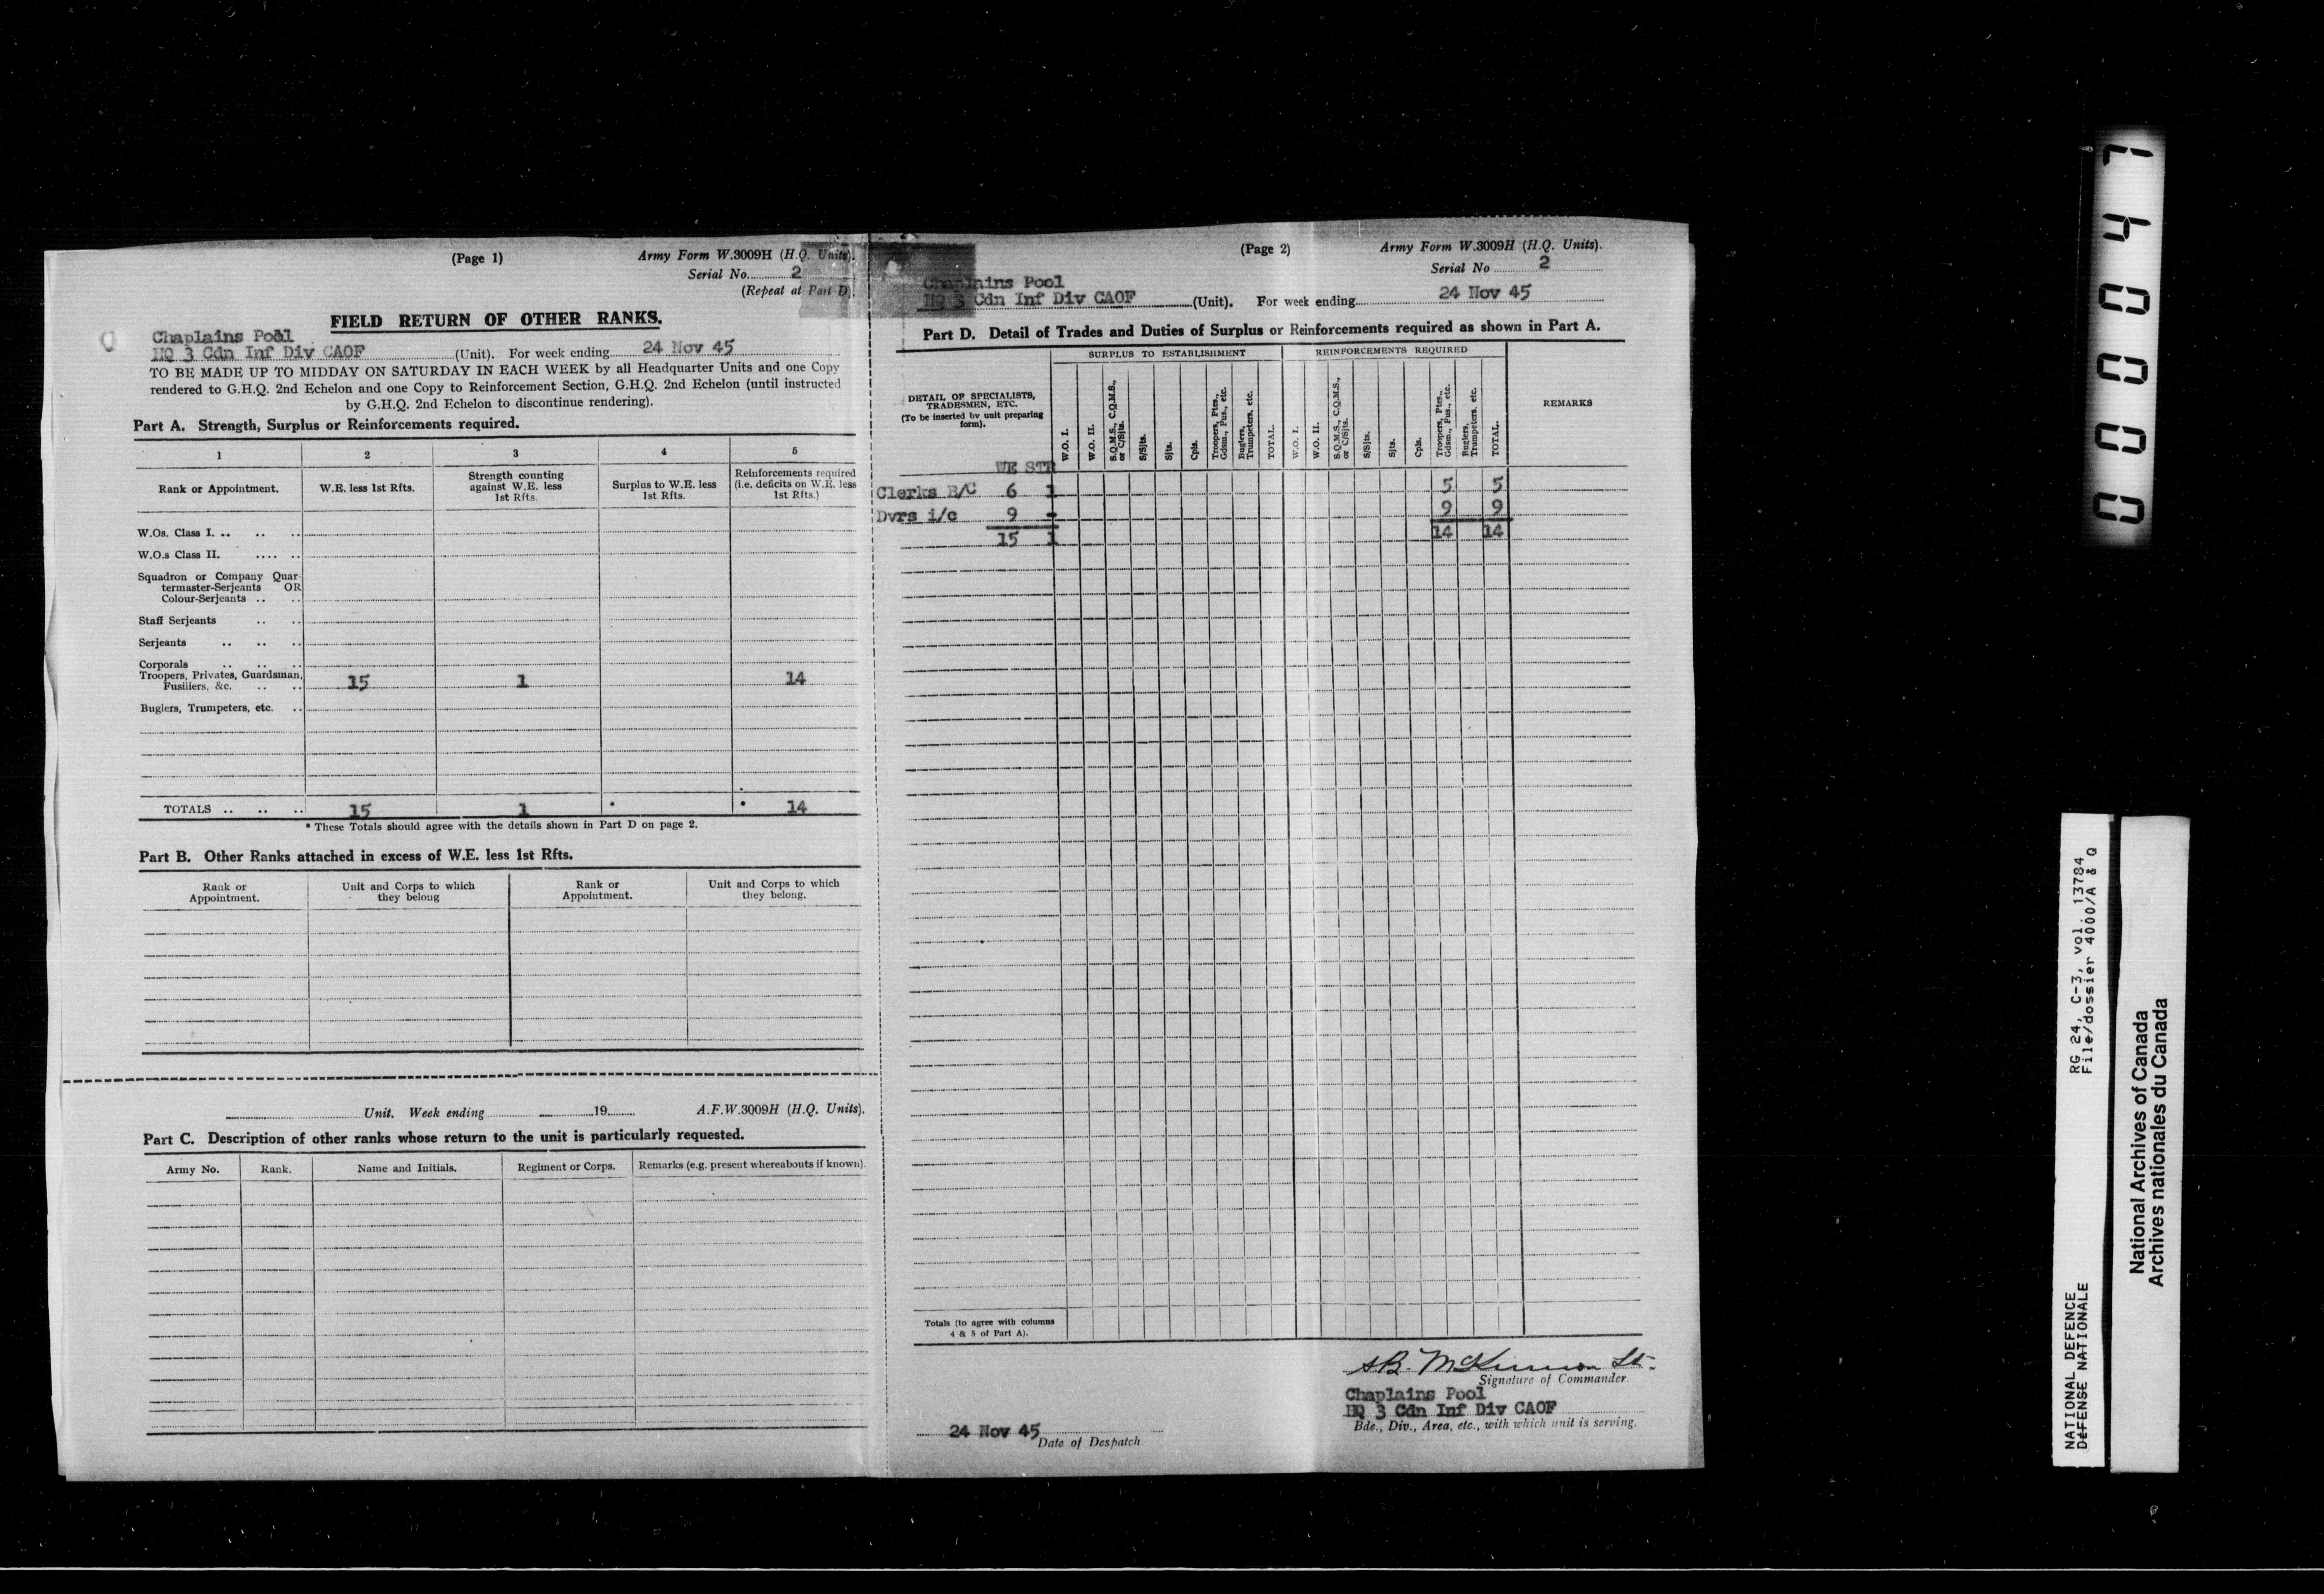 (Page 1)
Army Form W.3009H (H.Q. Units).
Serial No. 2
(Repeat at Part D).
FIELD RETURN OF OTHER RANKS.
Chaplains Pool
HQ 3 Cdn Inf Div CAOF (Unit). For week ending 24 Nov 45
TO BE MADE UP TO MIDDAY ON SATURDAY IN EACH WEEK by all Headquarter Units and one Copy
rendered to G.H.Q. 2nd Echelon and one Copy to Reinforcement Section, G.H.Q. 2nd Echelon (until instructed
by G.H.Q. 2nd Echelon to discontinue rendering).
Part A. Strength, Surplus or Reinforcements required.
1 2 3 4 5
Rank or Appointment. W.E. less 1st Rfts. Strength counting against W.E. less 1st Rfts. Surplus to W.E. less 1st Rfts. Reinforcements required (i.e. deficits on W.E. less 1st Rfts.)
W.Os. Class I. .. .. ..
W.O.s Class II. .... ..
Squadron or Company Quar-
termaster-Serjeants OR
Colour-Serjeants .. ..
Staff Serjeants .. ..
Serjeants .. .. ..
Corporals .. .. ..
Troopers, Privates, Guardsman,
Fusiliers, &c. .. .. 15 1 14
Buglers, Trumpeters, etc. ..
TOTALS .. .. .. 15 1 * * 14
* These Totals should agree with the details shown in Part D on page 2.
Part B. Other Ranks attached in excess of W.E. less 1st Rfts.
Rank or Appointment. Unit and Corps to which they belong Rank or Appointment. Unit and Corps to which they belong.
Unit. Week ending 19 A.F.W.3009H (H.Q. Units).
Part C. Description of other ranks whose return to the unit is particularly requested.
Army No. Rank. Name and Initials. Regiment or Corps. Remarks (e.g. present whereabouts if known).
(Page 2)
Army Form W.3009H (H.Q. Units).
Serial No 2
Chaplains Pool
HQ 3 Cdn Inf Div CAOF (Unit). For week ending 24 Nov 45
Part D. Detail of Trades and Duties of Surplus or Reinforcements required as shown in Part A.
SURPLUS TO ESTABLISHMENT REINFORCEMENTS REQUIRED
DETAIL OF SPECIALISTS,
TRADESMEN, ETC.
(To be inserted by unit preparing
form).
W.O. I.
W.O. II.
S.Q.M.S., C.Q.M.S., or C/Sjts.
S/Sjts.
Sjts.
Cpls.
Troopers, Ptes., Gdsm., Fus., etc.
Buglers, Trumpeters, etc.
TOTAL.
W.O. I.
W.O. II.
S.Q.M.S., C.Q.M.S., or C/Sjts.
S/Sjts.
Sjts.
Cpls.
Troopers, Ptes., Gdsm., Fus., etc.
Buglers, Trumpeters, etc.
TOTAL.
REMARKS
WE STR
Clerks B/C 6 1 5 5
Dvrs i/c 9 - 9 9
15 1 14 14
Totals (to agree with columns
4 & 5 of Part A).
S.B. McKinnon Lt.
Signature of Commander.
Chaplains Pool
HQ 3 Cdn Inf Div CAOF
Bde., Div., Area, etc., with which unit is serving.
24 Nov 45
Date of Despatch
000047
RG 24, C-3, vol. 13784
File/dossier 4000/A & Q
NATIONAL DEFENCE
DÉFENSE NATIONALE
National Archives of Canada
Archives nationales du Canada